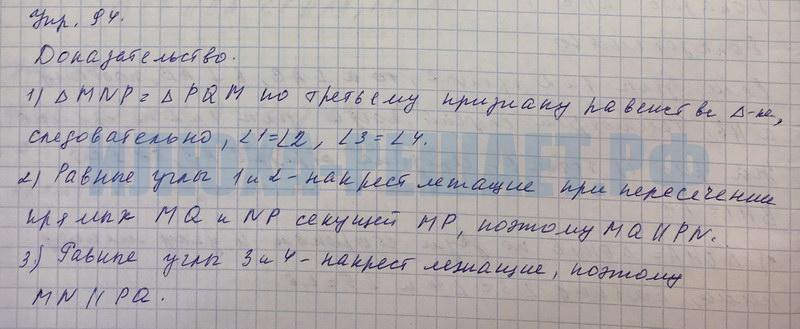 Упр. 94.
Доказательство.
1) Δ MNP = Δ PQM по третьему признаку равенства Δ-ка,
следовательно, ∠1=∠2, ∠3=∠4.
2) Равные углы 1 и 2 - накрест лежащие при пересечении
прямых MQ и NP секущей MP, поэтому MQ || PN.
3) Равные углы 3 и 4 - накрест лежащие, поэтому
MN || PQ.